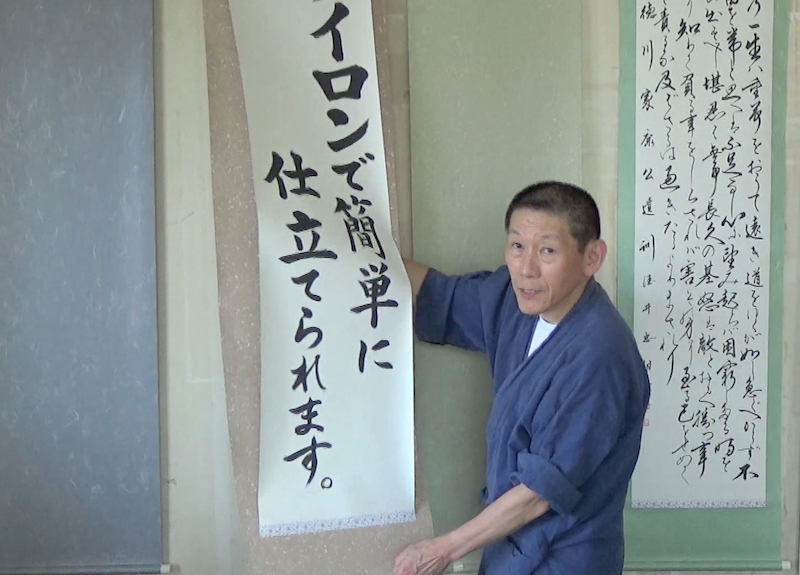 イロンで簡単に
仕立てられます。
の一生は重荷をおうて遠き道をゆくが如し急ぐべからず不
を常と思へば不足なし心に望み起らば困窮したる時を
出すべし堪忍は無事長久の基怒は敵とおもへ勝つ事
り知りて負る事をしらざれば害其身に至る己をせめて
責るな及ばざるは過ぎたるよりまされり
徳川家康公遺訓